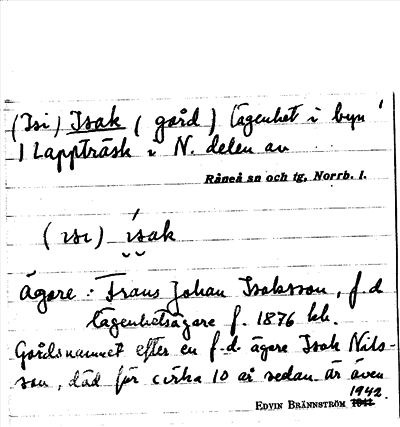 (Isi) Isak (gård) lägenhet i byn
Lappträsk i N. delen av
Råneå sn och tg, Norrb. l.
(ɪsɪ) ísak
ägare: Frans Johan Isaksson, f.d
lägenhetsägare f. 1876 hh.
Gårdsnamnet efter en f.d. ägare Isak Nils-
son, död för cirka 10 år sedan. är även
1942.
EDVIN BRÄNNSTRÖM 1941